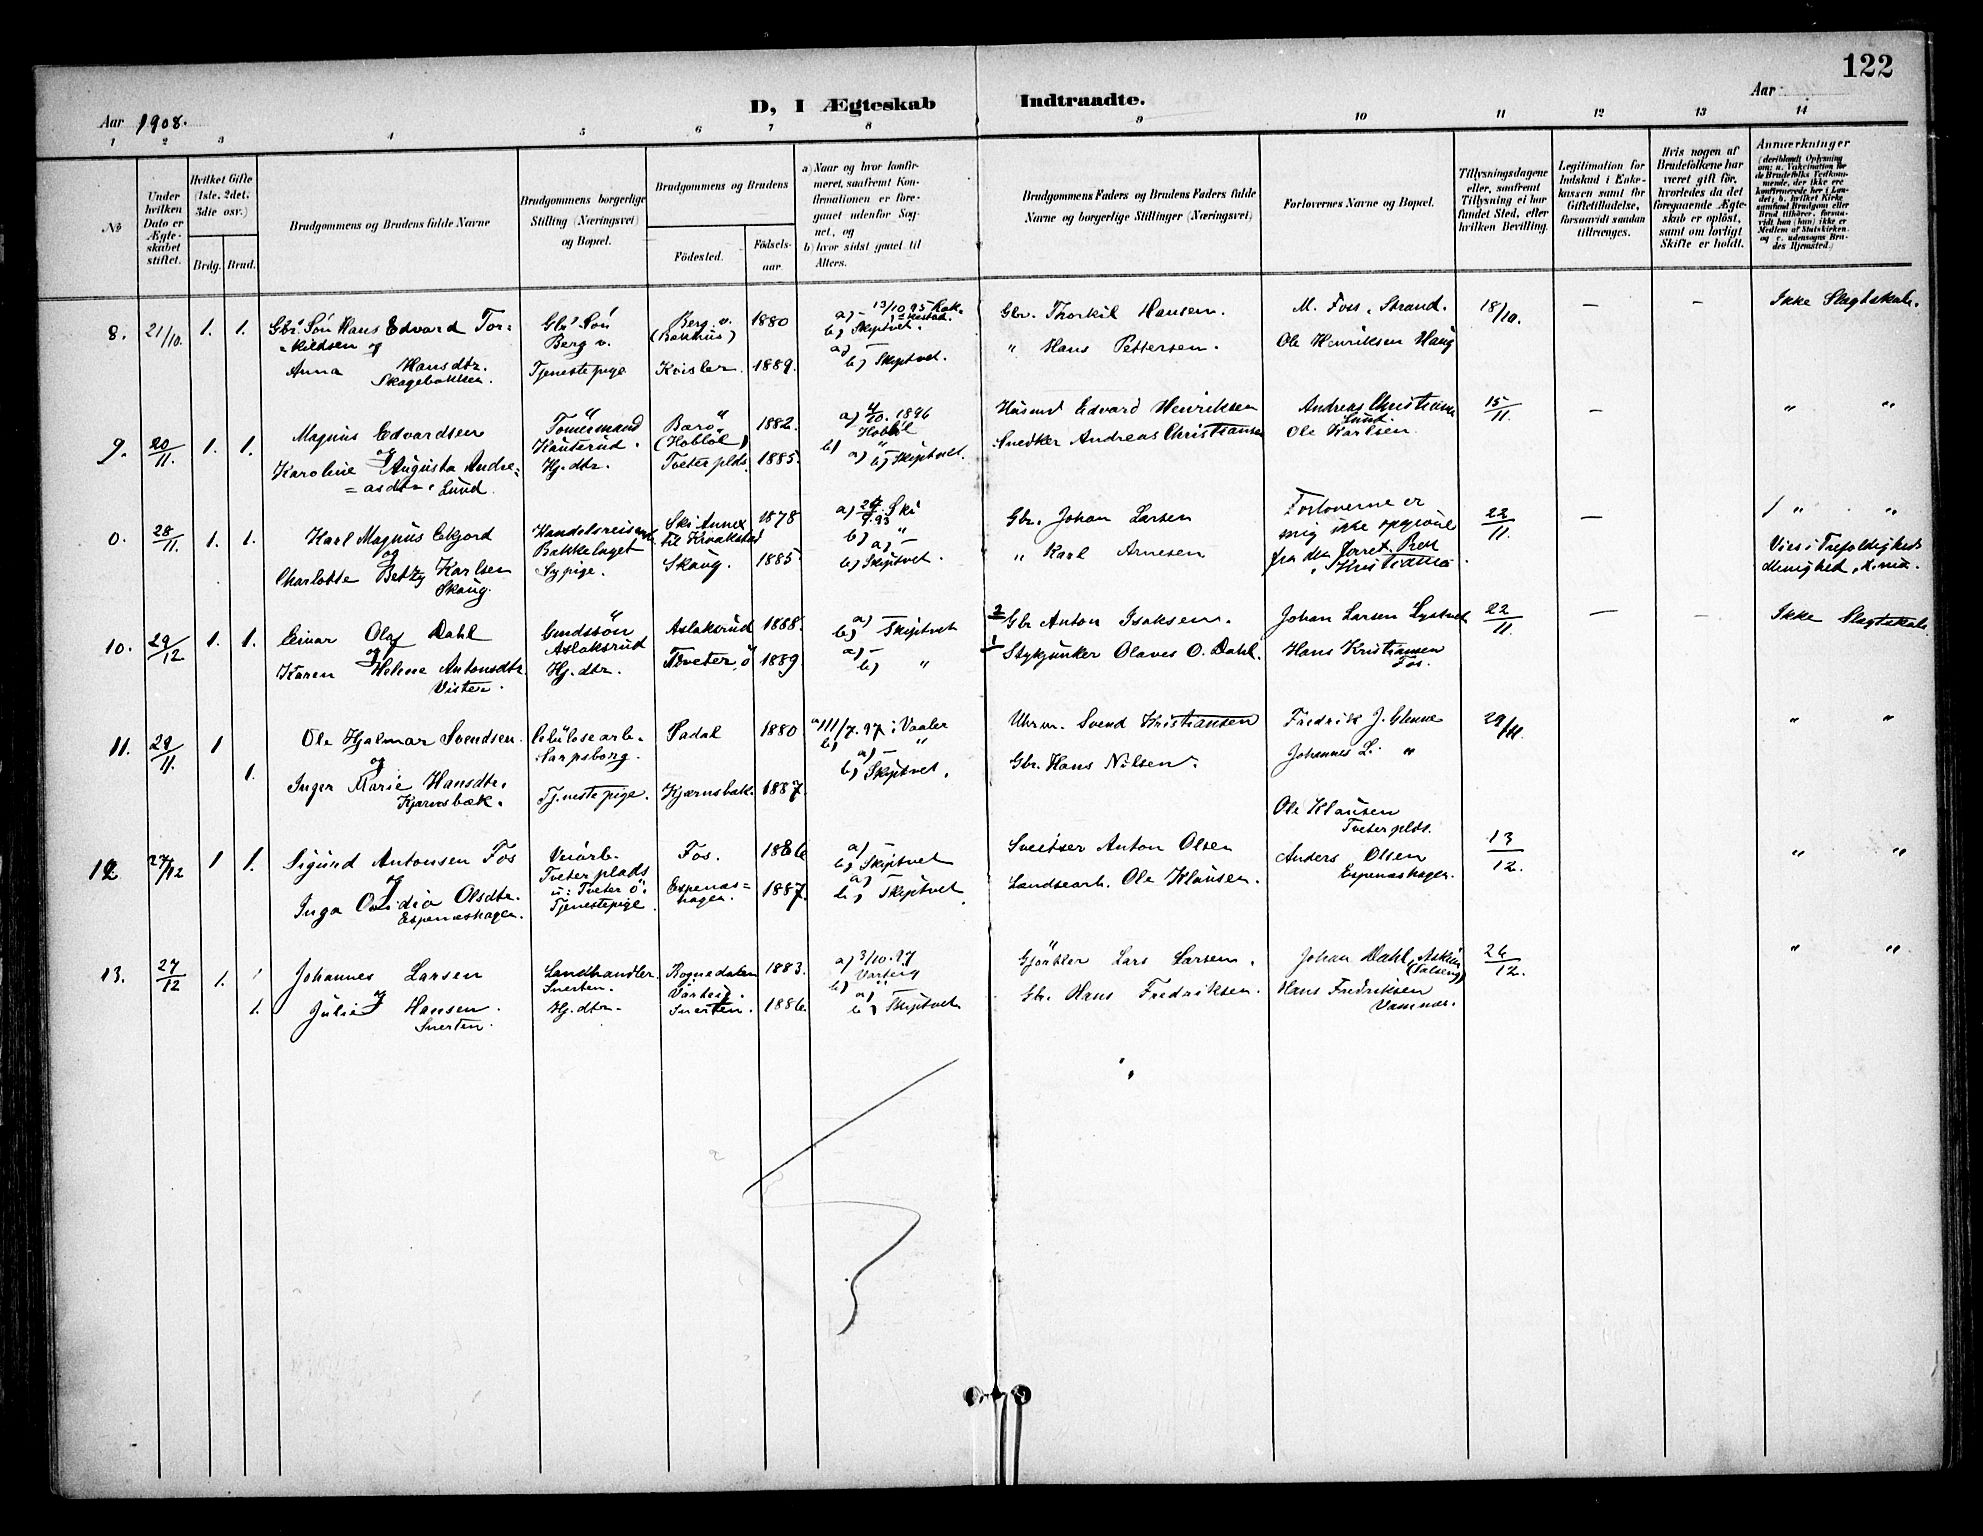 122
D, I Ægteskab Indtraadte.
Aar 1908.
Aar
1 2 3 4 5 6 7 8 9 10 11 12 13 14
No
Under hvilken Dato er Ægteskabet stiftet.
Hvilket Gifte (1ste, 2det, 3die osv.)
Brdg. Brud.
Brudgommens og Brudens fulde Navne
Brudgommens borgerlige Stilling (Næringsvei) og Bopæl.
Brudgommens og Brudens
Födested.
Födselsaar.
a) Naar og hvor konfirmeret, saafremt Konfirmationen er foregaaet udenfor Sognet, og
b) hvor sidst gaaet til Alters.
Brudgommens Faders og Brudens Faders fulde Navne og borgerlige Stillinger (Næringsvei)
Forlovernes Navne og Bopæl.
Tillysningsdagene eller, saafremt Tillysning ei har fundet Sted, efter hvilken Bevilling.
Legitimation for Indskud i Enkekassen samt for Giftetilladelse, forsaavidt saadan tiltrænges.
Hvis nogen af Brudefolkene har været gift för, hvorledes da det foregaaende Ægteskab er oplöst, samt om lovligt Skifte er holdt.
Anmærkninger
(deriblandt Oplysning om: a. Vakcination for de Brudefolks Vedkommende, der ikke ere konfirmerede her i Landet; b. hvilket Kirkesamfund Brudgom eller Brud tilhører, forsaavidt hun (han) ikke er Medlem af Statskirken, og c. udensogns Brudes Hjemsted.)
8. 21/10. 1. 1. Gbr. Søn Hans Edvard Tor=
kildsen og
Anna Hansdtr.
Skagebakken.
Gbr. Søn
Berg v.
Tjenestepige
Berg v.
(Bakkhus)
Kvisler.
1880
1889.
a) 13/10 95 Rakkestad.
b) Skiptvet.
a) –
b) Skiptvet.
Gbr. Thorkil Hansen.
" Hans Pettersen.
M. Foss, Strand.
Ole Henriksen Haug
18/10.
–
–
Ikke Slægtskab.
9. 20/11. 1. 1. Magnus Edvardsen
og
Karoline Augusta Andre=
asdtr. Lund.
Tømermand
Kauterud.
Hj. dtr.
(Hobøl)
Tveter plds.
1882.
1885.
a) 4/10. 1896
Hobøl
b) "
a) –
b) Skiptvet.
Husmd Edvard Henriksen
Snedker Andreas Christiansen
Andreas Christians
Lund
Ole Karlsen.
15/11.
–
" "
0. 28/11. 1. 1. Karl Magnus Ekjord
og
Charlotte Betzy Karlsen
Skaug.
Handelsreisend.
Bakkelaget
Sypige.
Ski Annex
til Kraakstad
Skaug.
1878
1885.
a) Ski
b) "
a) –
b) Skiptvet.
Gbr. Johan Larsen
" Karl Arnesen
Forloverne er
mig ikke opgivne
fra den forret. Præst
i Kristiania.
22/11.
–
" "
Viet i Trefoldigheds
Menighed, X.nia.
10. 29/12 1. 1. Einar Olaf Dahl
og
Karen Helene Antonsdtr.
Vister.
Gaardssøn
Aslaksrud
Hj. dtr.
Aslaksrud
Tveter, ö
1888.
1889.
a) –
b) Skiptvet
a) –
b) "
2 Gbr Anton Isaksen.
1 Stykjunker Olaves O. Dahl.
Johan Larsen Lystvet
Hans Kristiansen
Fos.
22/11.
–
–
Ikke Slægtskab.
11. 28/11. 1 1. Ole Hjalmar Svendsen.
og
Inger Marie Hansdtr.
Kjærnsbæk.
Celulosearb.
Sarpsborg.
Tjenestepige.
Kjærnsbæk.
1880
1887.
a) 11/7. 97 i Vaaler
b) "
a) –
b) Skiptvet.
Uhrm. Svend Kristiansen
Gbr. Hans Nilsen.
Fredrik J. Glenne
Johannes L. "
29/11.
" "
12 27/12 1 1. Sigurd Antonsen Fos
og
Inga Ovidia Olsdtr.
Espenæshagen.
Tveter plads
u: Tveter ö.
Tjenestepige.
Fos.
Espenæs=
hagen.
1886
1887.
a) –
b) Skiptvet
a) –
b) Skiptvet
Sveitser Anton Olsen
Landsarb. Ole Klausen.
Ole Klausen
Tveter plds.
Anders Olsen
Espenæshagen.
13/12.
" "
13. 27/12 1. 1 Johannes Larsen
og
1. Julie Hansen.
Sverten.
Landhandler.
Sverten.
Hj. dtr.
Rognedalen
Varteig.
Sverten.
1883.
1886.
a) 3/10. 97
Varteig
b) "
a)
b) Skiptvet
Gjørtler Lars Larsen.
Gbr. Hans Fredriksen.
Johan Dahl, Askim
Hans Fredriksen
26/12.
" "